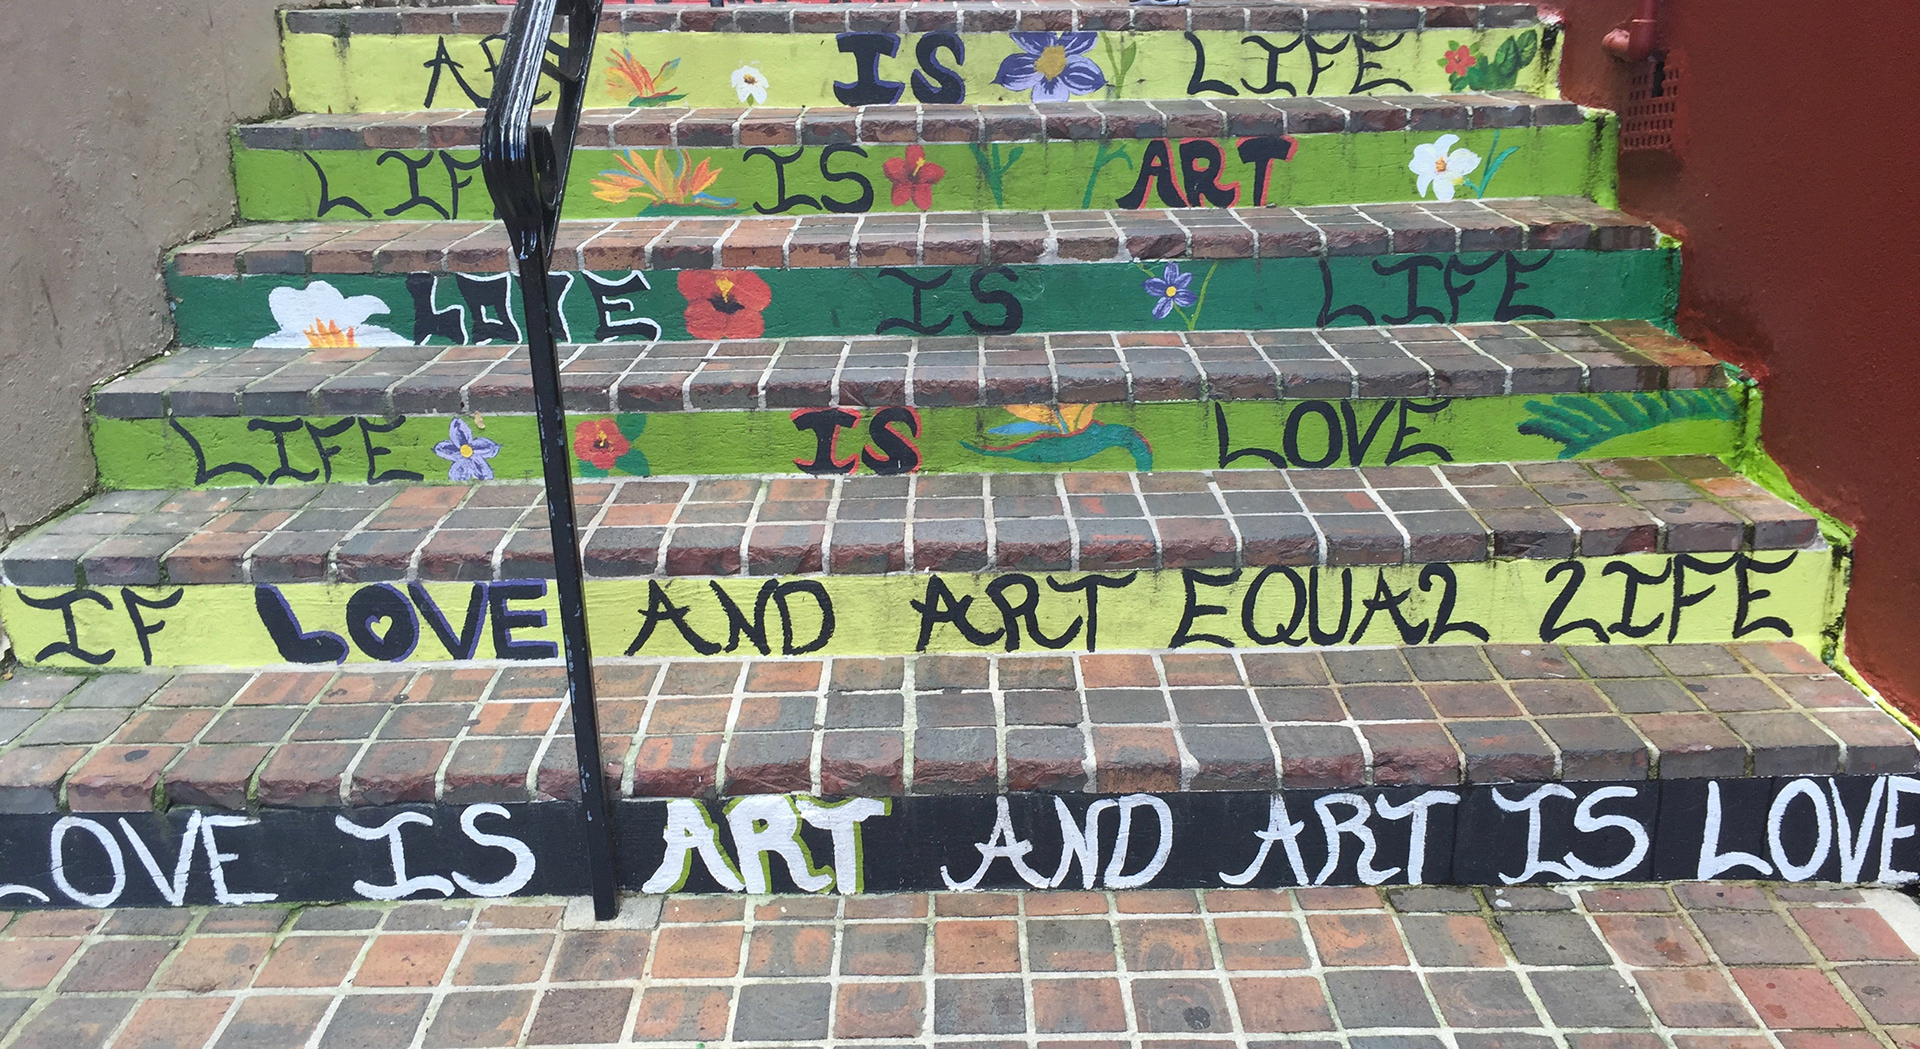 ART IS LIFE
LIFE IS ART
LOVE IS LIFE
LIFE IS LOVE
IF LOVE AND ART EQUAL LIFE
LOVE IS ART AND ART IS LOVE